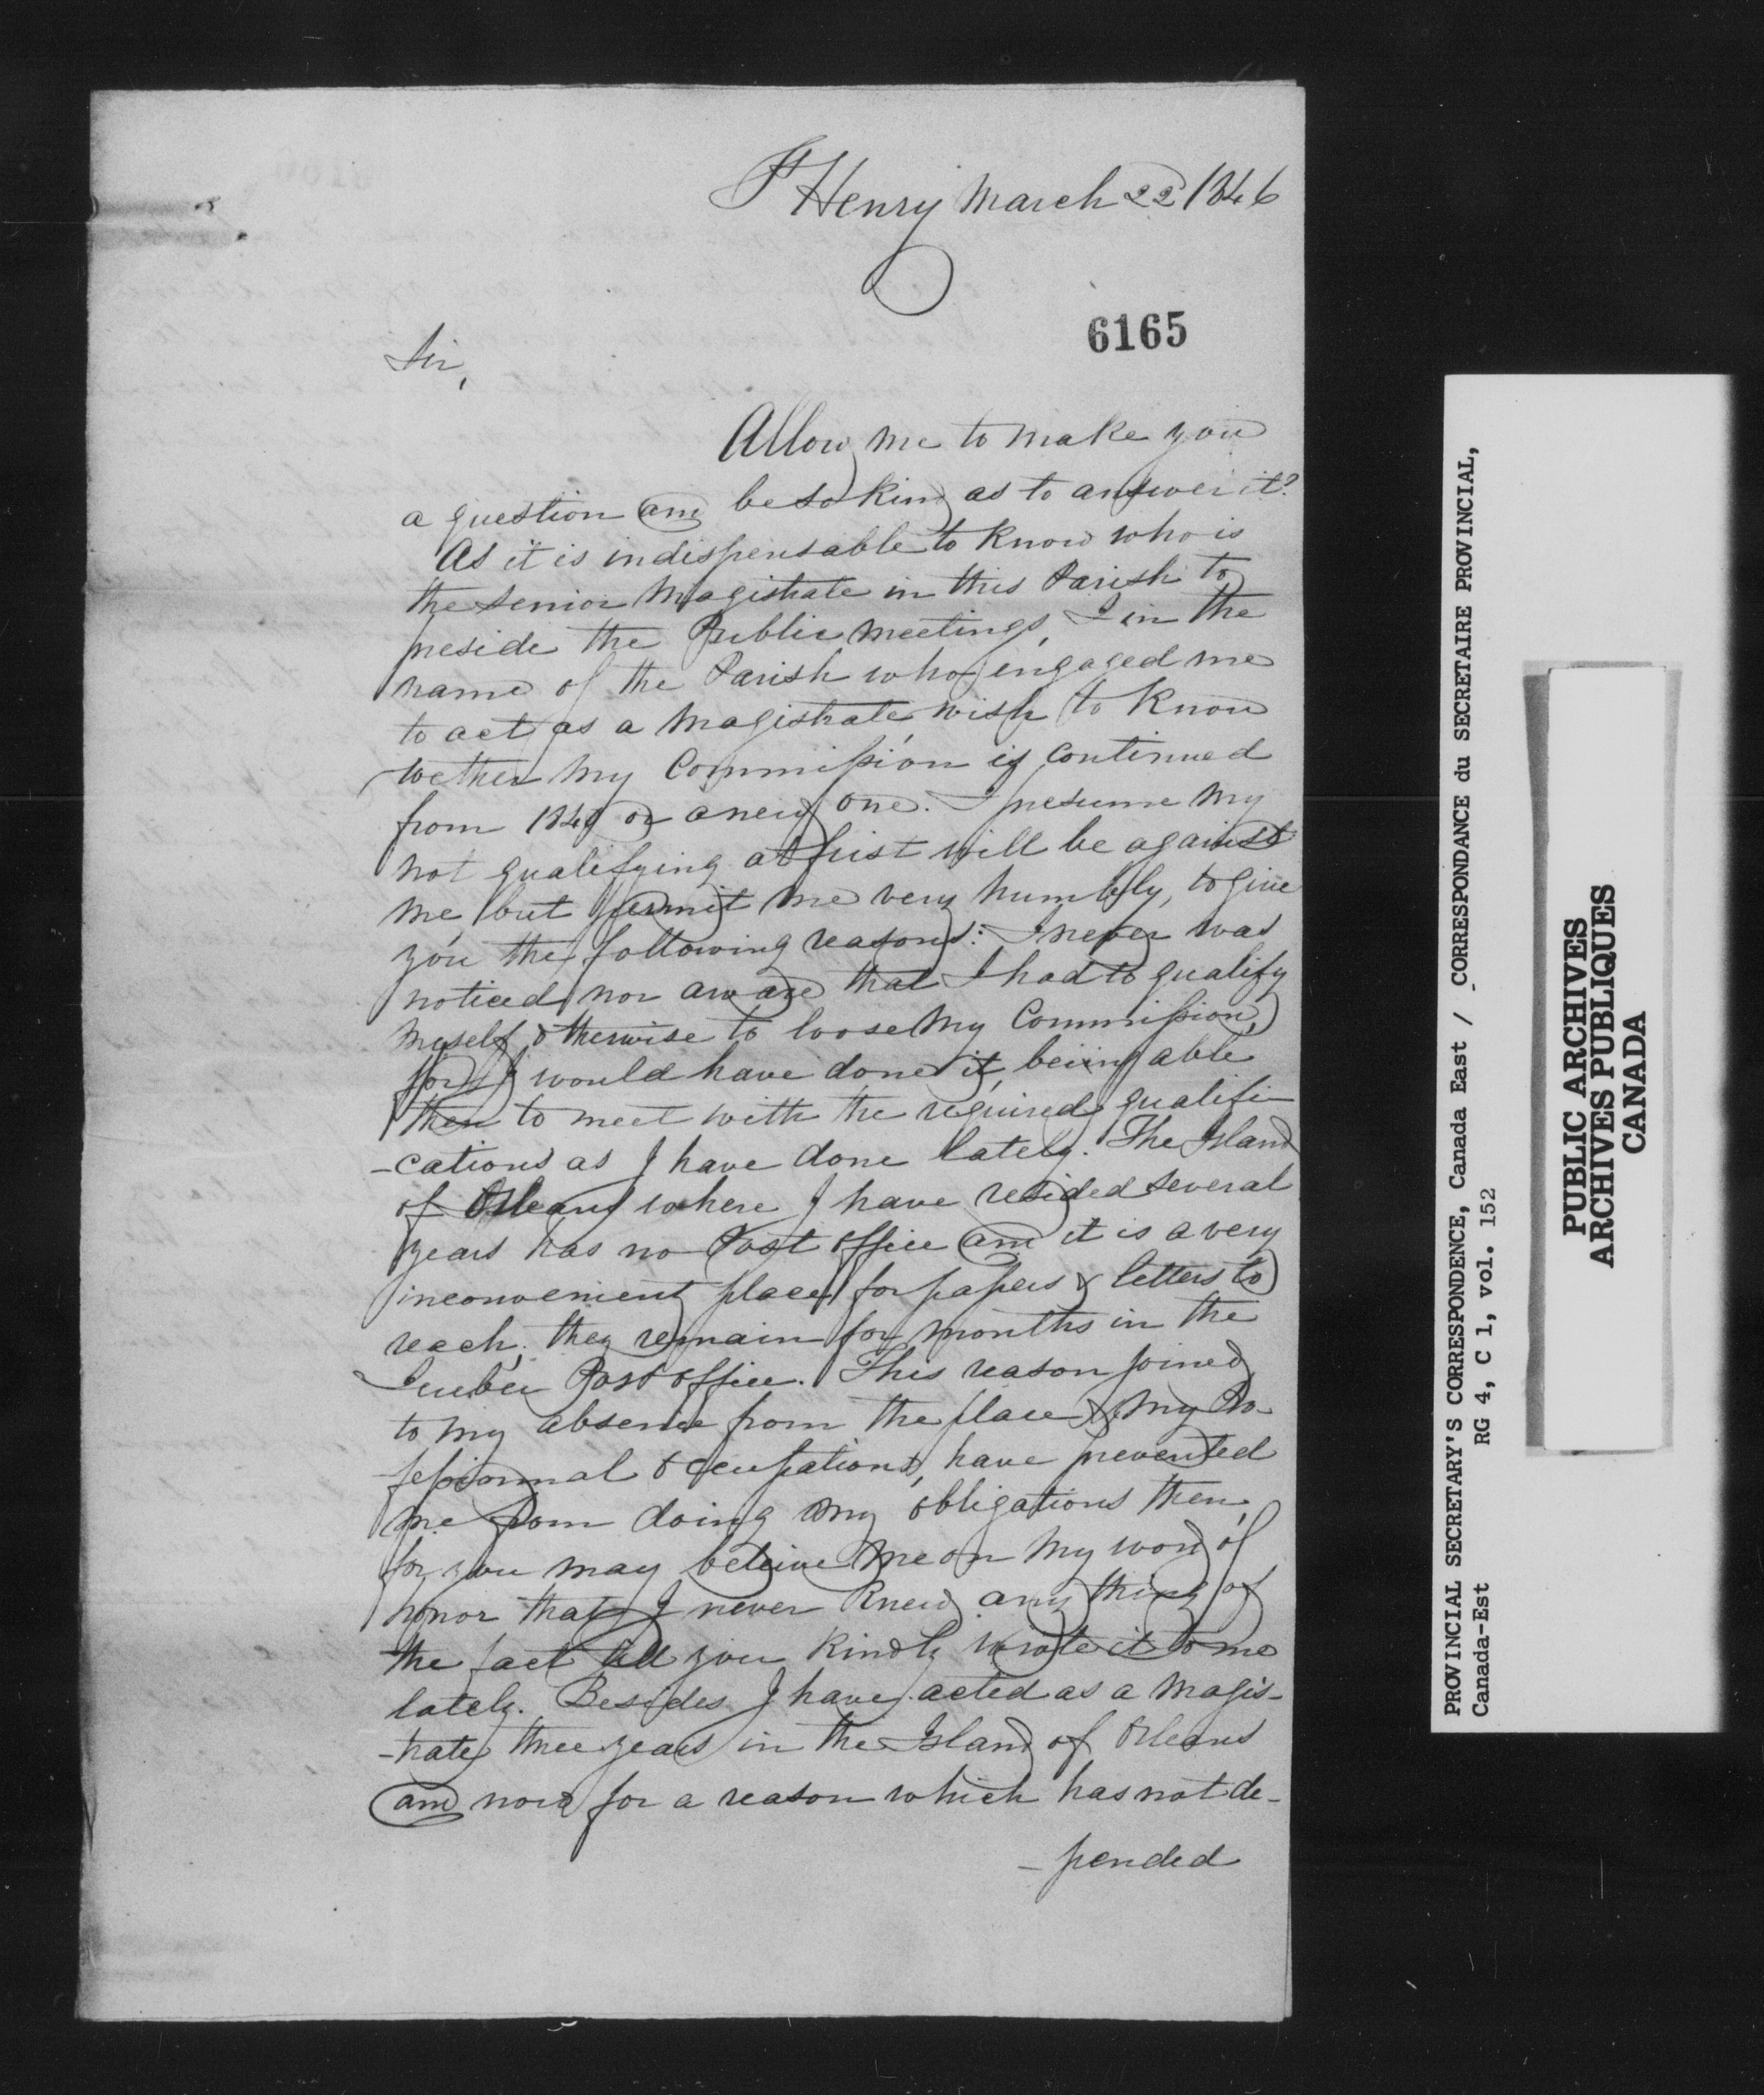 St Henry March 22d 1846
6165
Sir,
Allow me to make you
a question and be so kind as to answer it?
As it is indispensable to know who is
the senior Magistrate in this Parish to
preside the Public meetings, I in the
name of the Parish who engaged me
to act as a Magistrate wish to know
wether my Commission is continued
from 1840 or a new one. I presume my
not qualifying at first will be against
me, but permit me very humbly, to give
you the following reasons: I never was
noticed nor aware that I had to qualify
myself otherwise to loose my Commission,
for I would have done it, being able
then to meet with the required qualifi-
-cations as I have done lately. The Island
of Orleans where I have resided several
years has no Post office and it is a very
inconvenient place for papers & letters to
reach; they remain for months in the
Quebec Post office. This reason joined
to my absence from the place & my Pro-
fessionnal occupations, have prevented
me from doing my obligations then,
for you may beleive me on my word of
honor that I never knew any thing of
the fact till you kindly wrote it to me
lately. Besides I have acted as a Magis-
-trate three years in the Island of Orleans
and now for a reason which has not de-
-pended
PROVINCIAL SECRETARY'S CORRESPONDENCE, Canada East / CORRESPONDANCE du SECRETAIRE PROVINCIAL,
Canada-Est RG 4, C 1, vol. 152
PUBLIC ARCHIVES
ARCHIVES PUBLIQUES
CANADA